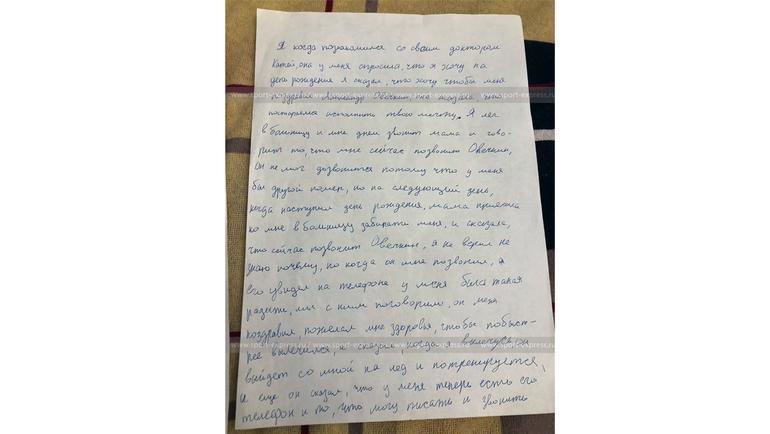 Я когда познакомился со своим доктором
Катей, она у меня спросила, что я хочу на
день рождения я сказал, что хочу чтобы меня
поздравил Александр Овечкин, она сказала что
постараемся исполнить твою мечту. Я лег
в больницу и мне днем звонит мама и гово-
рит то, что мне сейчас позвонит Овечкин,
Он не мог дозвонится потому что у меня
был другой номер, но на следующий день,
когда наступил день рождения, мама приехала
ко мне в больницу забирать меня, и сказала,
что сейчас позвонит Овечкин, я не верил не
знаю почему, но когда он мне позвонил, я
его увидел на телефоне у меня была такая
радость, мы с ним поговорили, он меня
поздравил, пожелал мне здоровья, чтобы побыст-
рее вылечился, и сказал, когда я вылечусь он
выйдет со мной на лед и потренируется,
и еще он сказал, что у меня теперь есть его
телефон и то, что могу писать и звонить
www.sport-express.ru